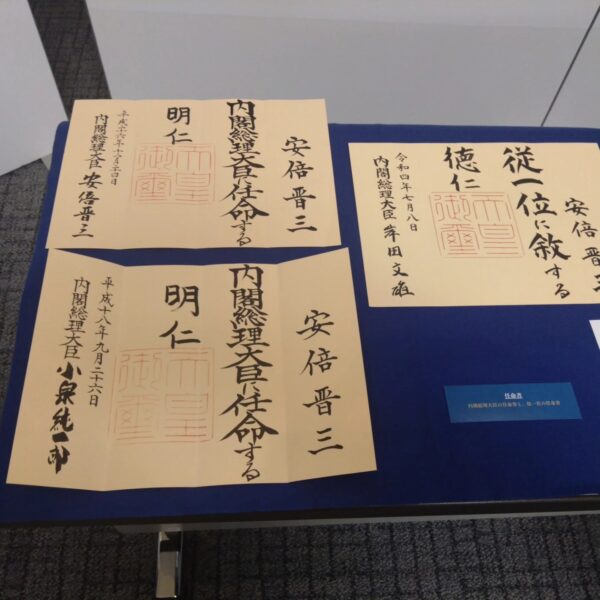 安倍晋三
内閣総理大臣に任命する
明仁
天皇
御璽
平成二十六年十二月二十四日
内閣総理大臣 安倍晋三
安倍晋三
内閣総理大臣に任命する
明仁
天皇
御璽
平成十八年九月二十六日
内閣総理大臣 小泉純一郎
安倍晋三
従一位に叙する
徳仁
天皇
御璽
令和四年七月八日
内閣総理大臣 岸田文雄
任命書
内閣総理大臣の任命書